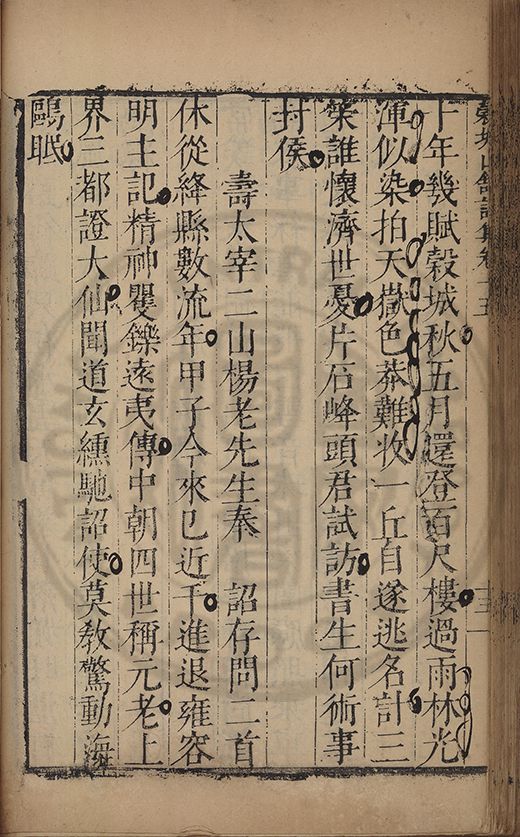 穀城山館詩集卷十五
十年幾賦穀城秋五月還登百尺樓過雨林光
渾似染拍天嶽色莽難收一丘自遂逃名計三
策誰懷濟世憂片石峰頭君試訪書生何術事
封侯
壽太宰二山楊老先生奉　詔存問二首
休從絳縣數流年甲子今來已近千進退雍容
明主記精神矍鑠遠夷傳中朝四世稱元老上
界三都證大仙聞道玄纁馳詔使莫教驚動海
鷗眠